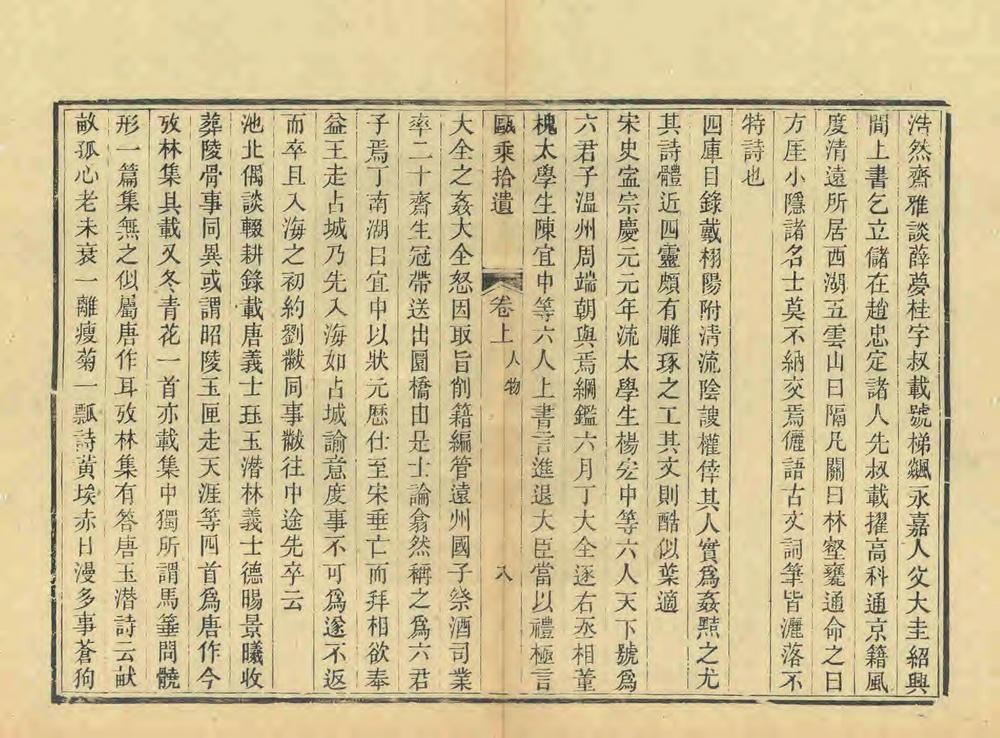 浩然齋雅談薛夢桂字叔載號梯飆永嘉人父大圭紹興
間上書乞立儲在趙忠定諸人先叔載擢高科通京籍風
度清遠所居西湖五雲山曰隔凡關曰林壑甕通命之曰
方厓小隱諸名士莫不納交焉儷語古文詞筆皆灑落不
特詩也
四庫目錄戴栩陽附清流陰諛權倖其人實爲姦黠之尤
其詩體近四靈頗有雕琢之工其文則酷似葉適
宋史寍宗慶元元年流太學生楊宏中等六人天下號爲
六君子溫州周端朝與焉綱鑑六月丁大全逐右丞相董
槐太學生陳宜中等六人上書言進退大臣當以禮極言
甌乘拾遺 卷上 人物 八
大全之姦大全怒因取旨削籍編管遠州國子祭酒司業
率二十齋生冠帶送出圜橋由是士論翕然稱之爲六君
子焉丁南湖曰宜中以狀元歷仕至宋垂亡而拜相欲奉
益王走占城乃先入海如占城諭意度事不可爲遂不返
而卒且入海之初約劉黻同事黻往中途先卒云
池北偶談輟耕錄載唐義士珏玉潛林義士德暘景曦收
葬陵骨事同異或謂昭陵玉匣走天涯等四首爲唐作今
攷林集具載又冬青花一首亦載集中獨所謂馬箠問髐
形一篇集無之似屬唐作耳攷林集有答唐玉潛詩云畎
畝孤心老未衰一離瘦菊一瓢詩黃埃赤日漫多事蒼狗